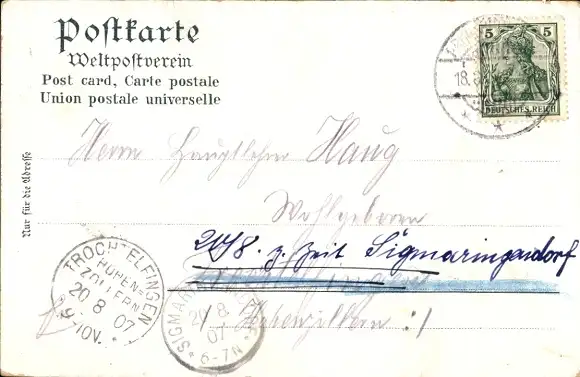 Postkarte
Weltpostverein
Post card, Carte postale
Union postale universelle
Nur für die Adresse
5 5
DEUTSCHES REICH
18.
Herrn Hauptlehrer Haug
Wohlgeboren
20/8. z. Zeit Sigmaringendorf
/: Hohenzollern :/
TROCHTELFINGEN
HOHEN-
ZOLLERN
20 8 07
9-10V.
SIGMARINGENDORF
20.8.
07
6-7N